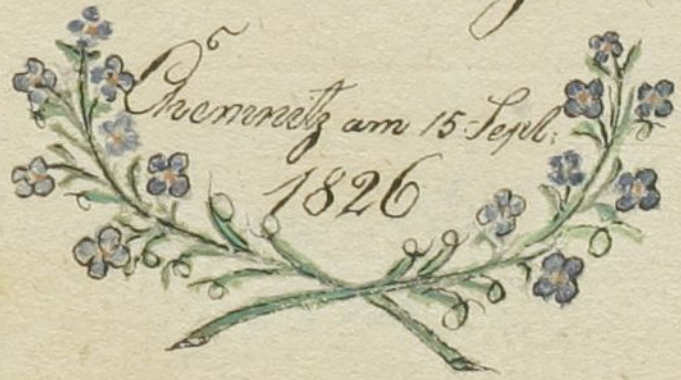 Chemnitz am 15 Sept:
1826